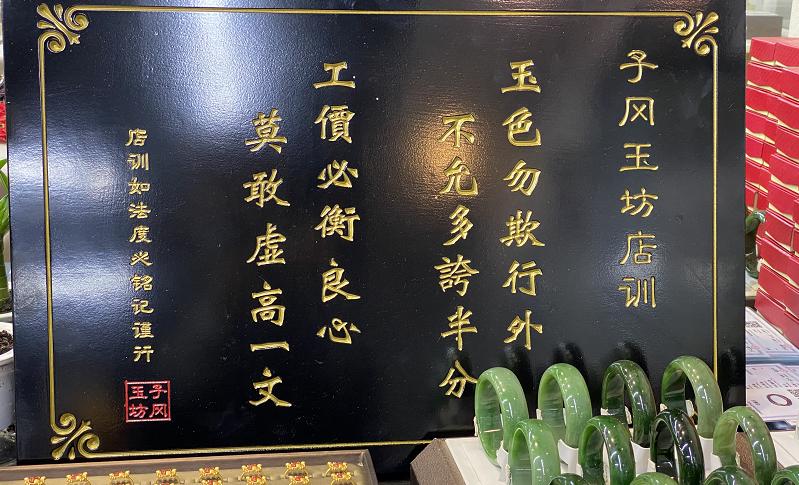 子冈玉坊店训
玉色勿欺行外
不允多誇半分
工價必衡良心
莫敢虚高一文
店训如法度必铭记谨行
子冈玉坊